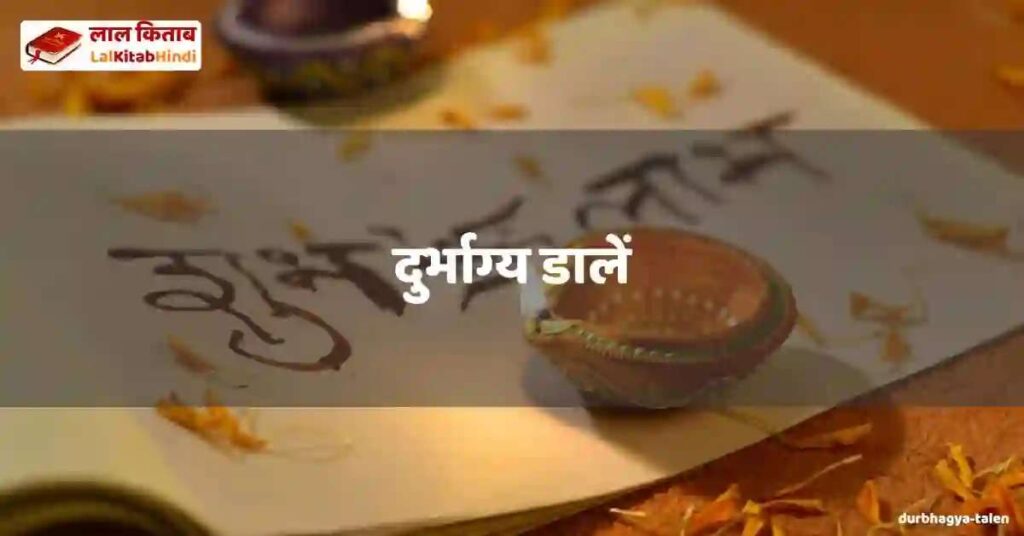 लाल किताब
LalKitabHindi
शुभ लाभ
दुर्भाग्य डालें
durbhagya-talen